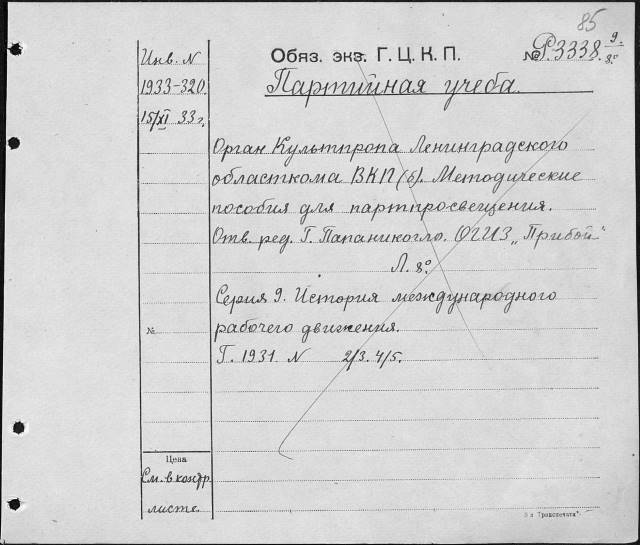 85
Инв. N
1933-320.
15/XI 33 г.
Обяз. экз. Г. Ц. К. П.
№ Р.3338. 9/8°
Партийная учеба.
Орган Культпропа Ленинградского
областкома ВКП(б). Методические
пособия для партпросвещения.
Отв. ред. Г. Папаниколло. ОГИЗ „Прибой“
Л. 8°.
Серия 9. История международного
рабочего движения.
Г. 1931 N 2/3. 4/5.
№
Цена
См. в контр.
листе.
"Транспечати"